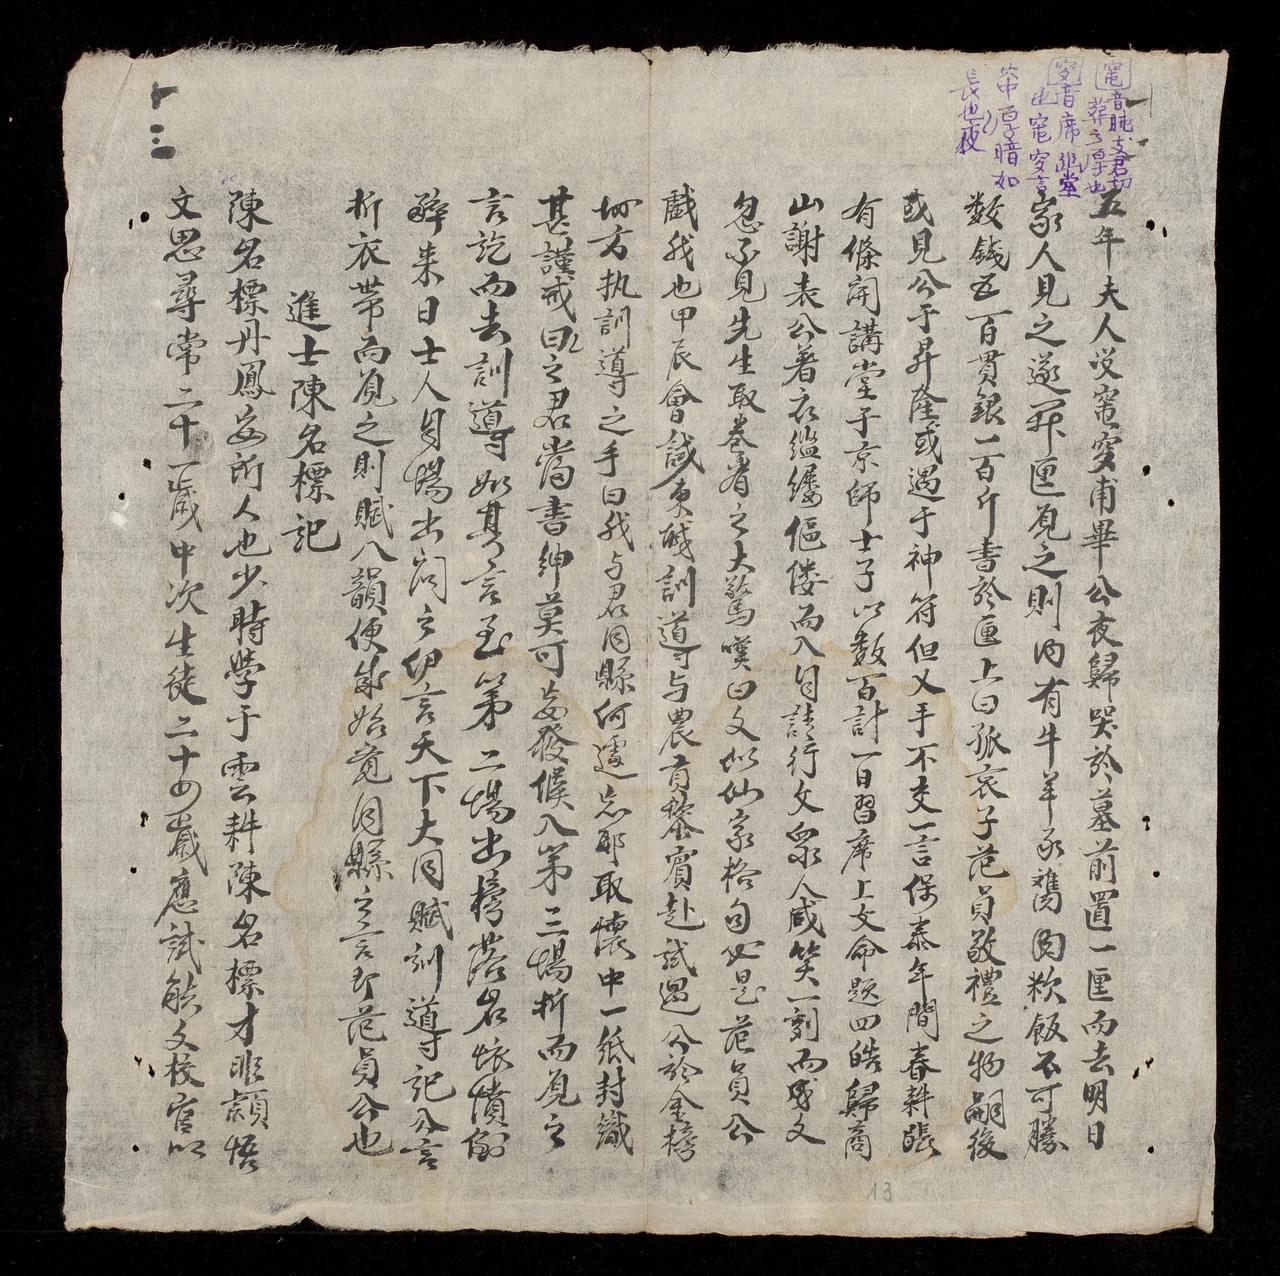 五年夫人没窀穸甫畢公夜歸哭於墓前置一匣而去明日
家人見之遂開匣覓之則內有牛羊豕肉粢飯不可勝
数錢五百貫銀一百斤書於匣上曰孤哀子范員敬禮之物嗣後
或見公于昇隆或遇于神符但叉手不交一言保泰年間春耕張
有條開講堂于京師士子以数百計一日習席上文命題四皓歸商
山謝表公著衣繿縷傴僂而入自請行文衆人咸笑一刻而成文
忽不見先生取卷看之大驚嘆曰文似仙家格句必是范員公
戲我也甲辰會試東城訓導与農貢黎賓赴試遇公於金榜
坊方执訓導之手曰我与君同縣何遽忘耶取懷中一紙封緘
甚謹戒曰之君當書紳莫可妄發候入第三場折而覓之
言訖而去訓導如其言至第二場出榜落名悵憤倒
醉来日士人自場出问之伊言天下大同賦訓導記公言
折衣帶而覓之則賦八韻便成始覚同縣之言即范員公也
進士陳名標記
陳名標丹鳳安所人也少時學于雲耕陳名標才非穎悟
文思尋常二十一歲中次生徒二十四歲應試觧文校官以
十三
窀音肫支君切
葬之厚也
穸音席非堂
也窀穸言
穸厚暗如
長也夜
13